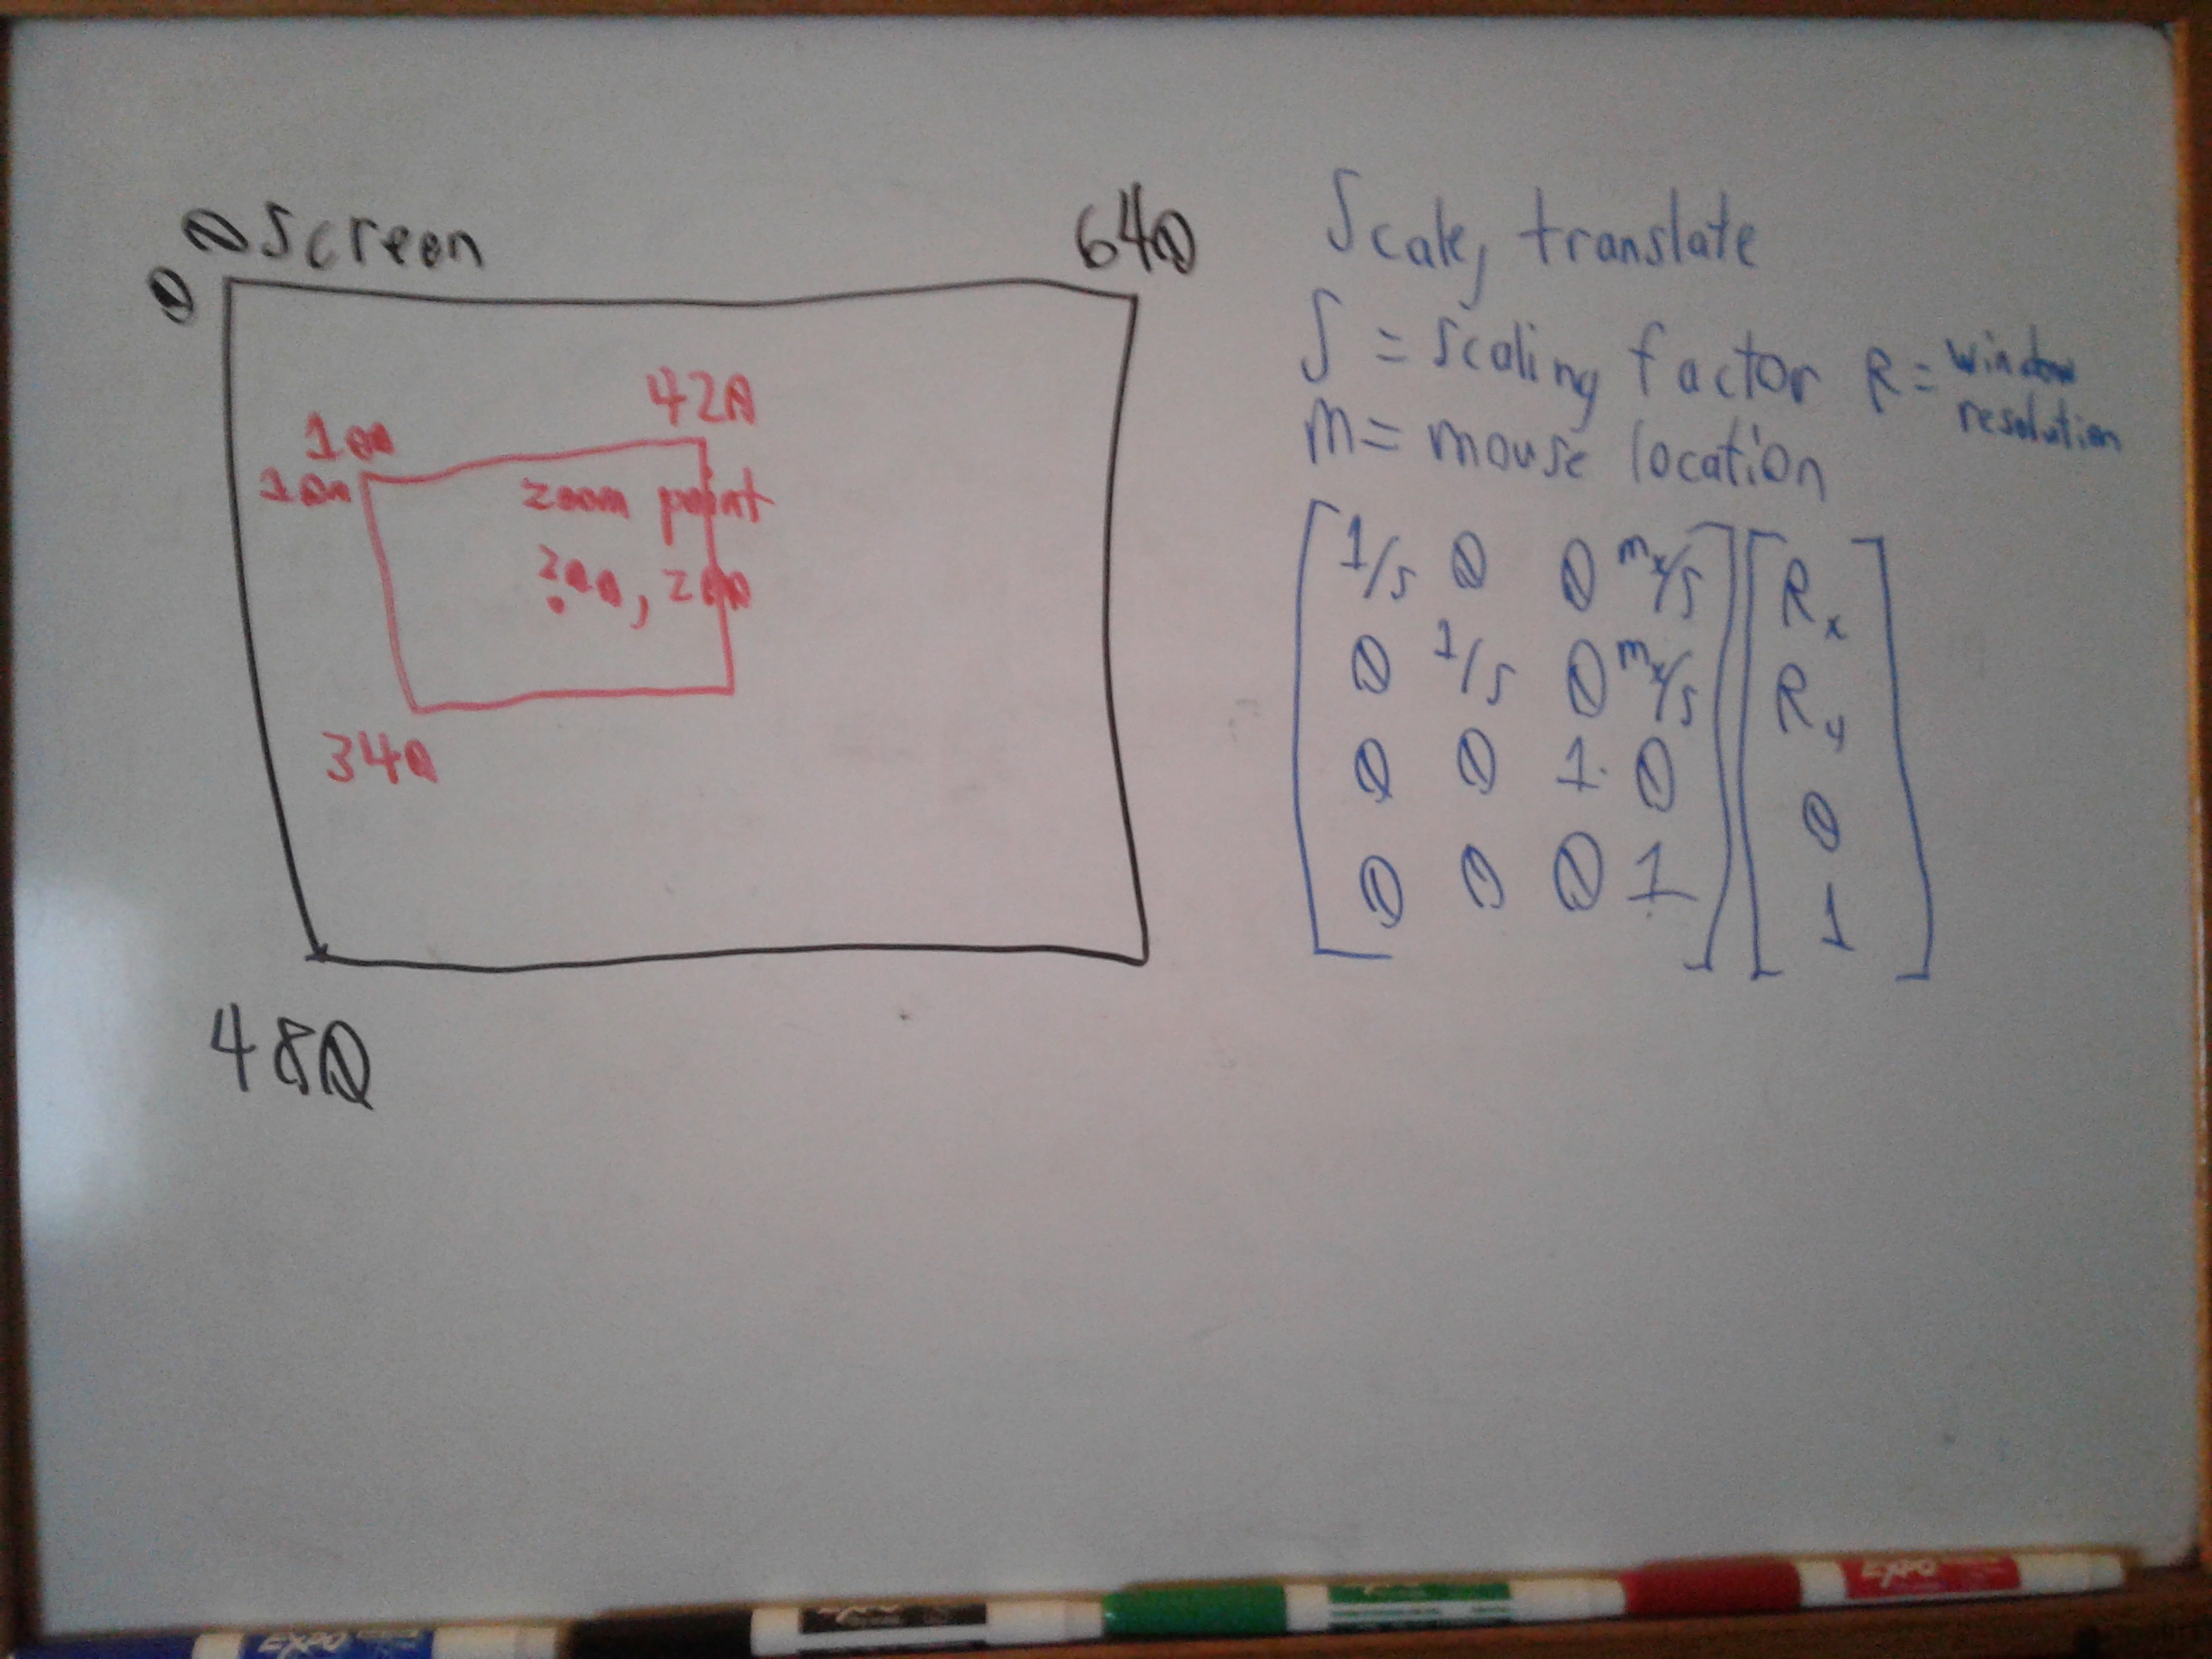 0 Screen 640
0
420
100
100 zoom point
200, 200
340
480
Scale, translate
S = scaling factor R = window resolution
m = mouse location
1/s 0 0 mx/s Rx
0 1/s 0 mx/s Ry
0 0 1 0 0
0 0 0 1 1
EXPO EXPO